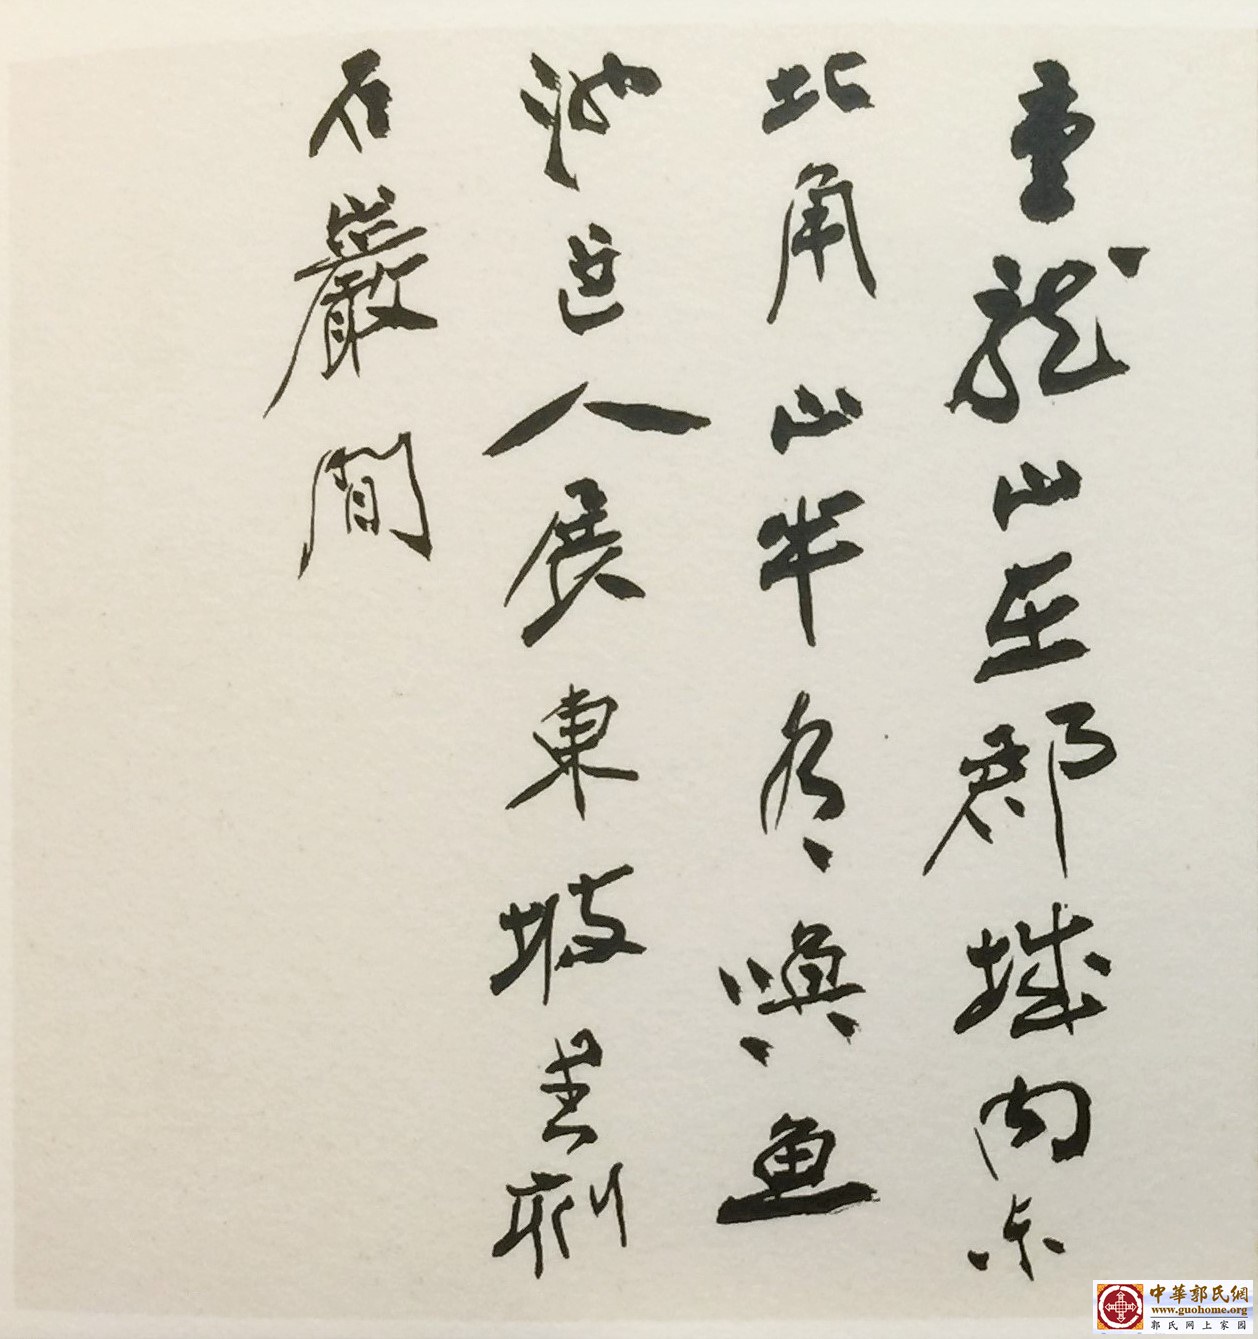 重龍山在郡城内东
北角山半有唤鱼
池邑人展東坡書刻
石巖間
中華郭氏網
www.guohome.org
郭氏网上家园